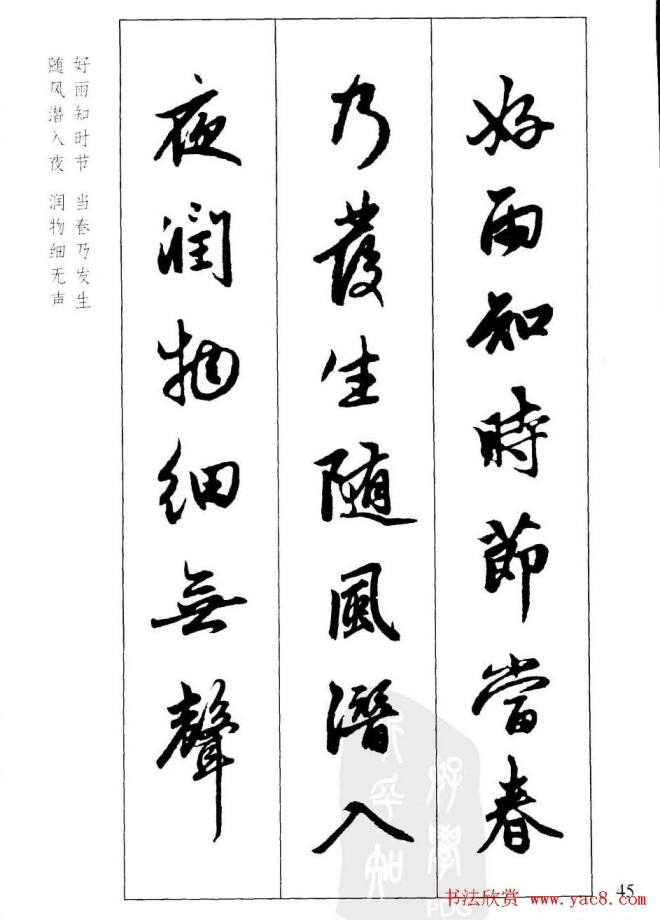 好雨知時節當春
乃發生随風潛入
夜潤物細無聲
好雨知时节 当春乃发生
随风潜入夜 润物细无声
45
书法欣赏 www.yac8.com